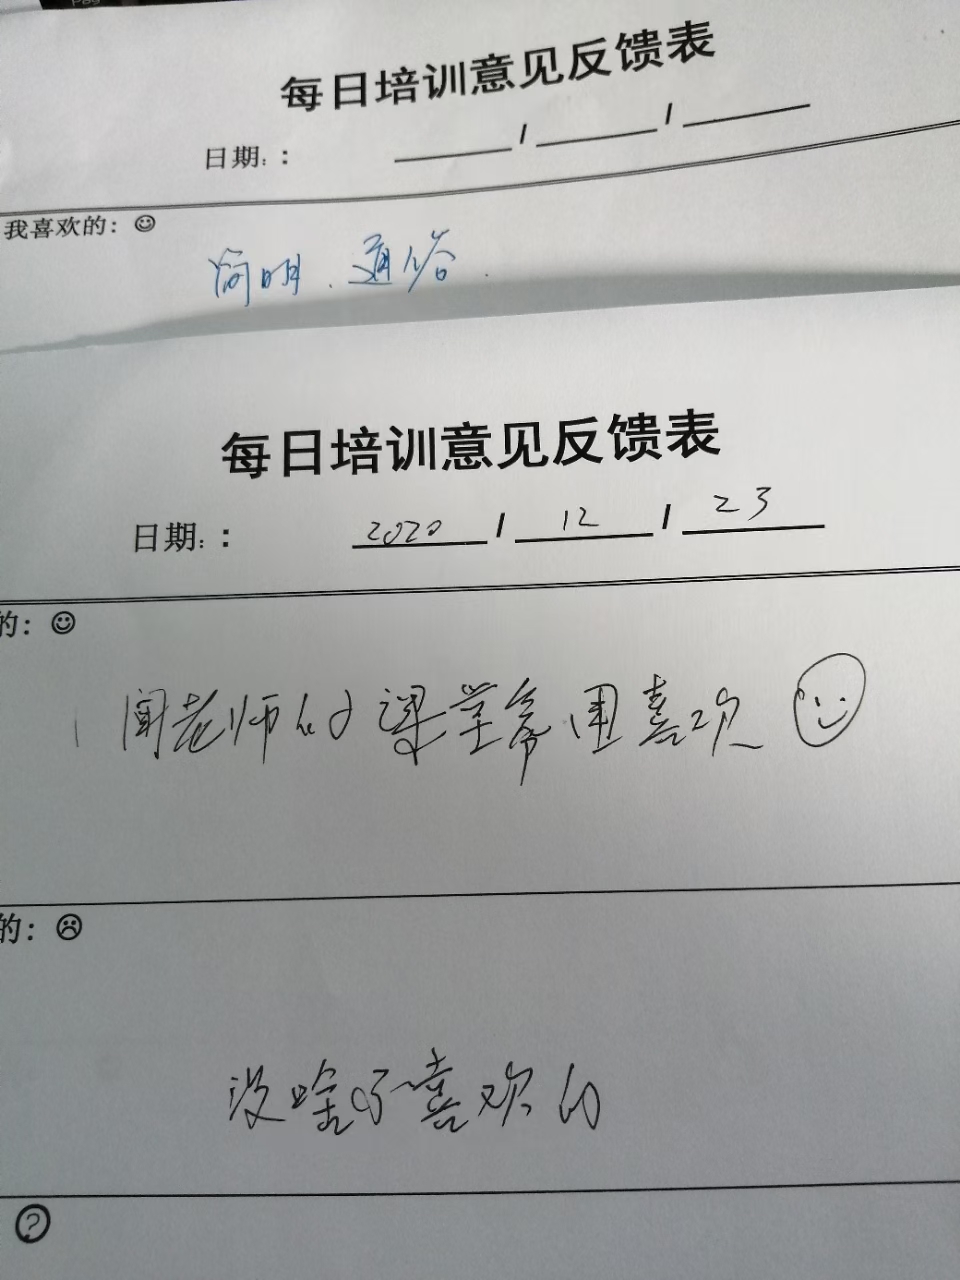 每日培训意见反馈表
日期：： / /
我喜欢的：☺
简明、通俗.
每日培训意见反馈表
日期：： 2020 / 12 / 23
的：☺
闻老师的课堂氛围喜欢
的：☹
没啥不喜欢的
?